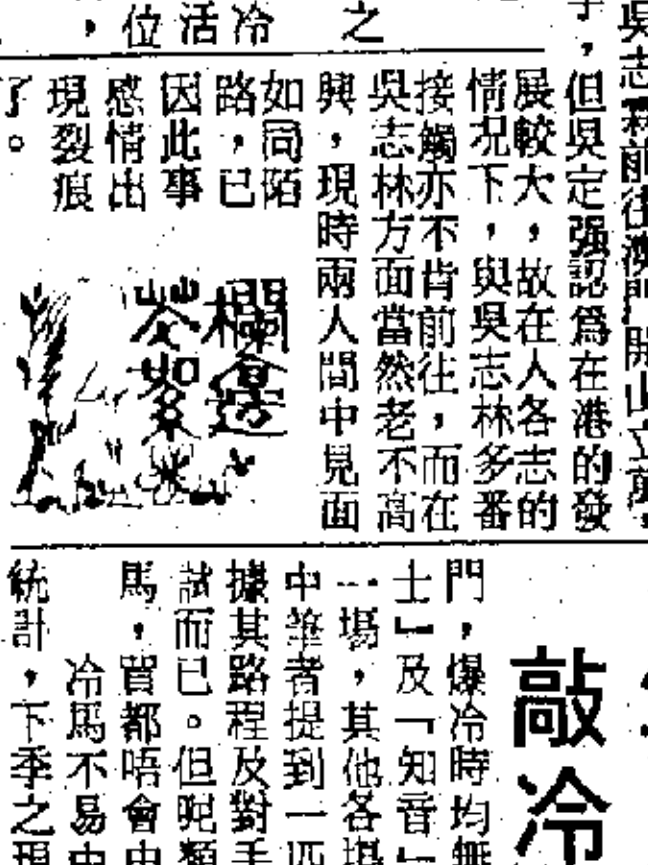 之
冷
活
，位
吳志霖前往澳門開山立萬，
手，但吳定强認爲在港的發
展較大，故在人各志的
情况下，與吳志林多番
接觸亦不肯前往，而在
吳志林方面當然老不高
興，現時兩人間中見面
如同陌
路，已
因此事
感情出
現裂痕
了。
欄邊
敲冷
門，爆冷時均無
士」及「知音」
一場，其他各場
中筆者提到一匹
據其路程及對手
試而已。但呢類
馬，買都唔會中
冷馬不易中
統計，下季之現